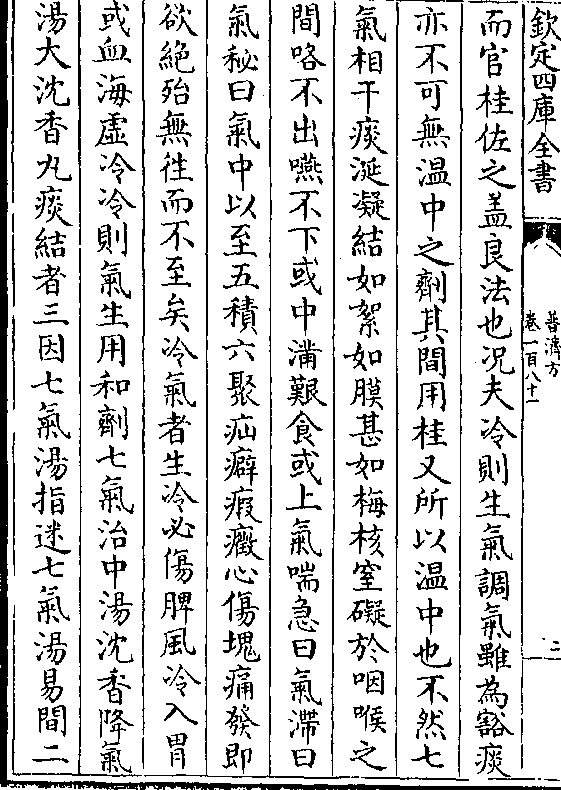 欽定四庫全書
普濟方
卷一百八十一
二
而官桂佐之盖良法也况夫冷則生氣調氣雖為豁痰
亦不可無温中之劑其間用桂又所以温中也不然七
氣相干痰涎凝結如絮如膜甚如梅核窒礙於咽喉之
間咯不出嚥不下或中滿艱食或上氣喘急曰氣滯曰
氣秘曰氣中以至五積六聚疝癖瘕癥心傷塊痛發即
欲絶殆無徃而不至矣冷氣者生冷必傷脾風冷入胃
或血海虚冷冷則氣生用和劑七氣治中湯沈香降氣
湯大沈香丸痰結者三因七氣湯指迷七氣湯易間二